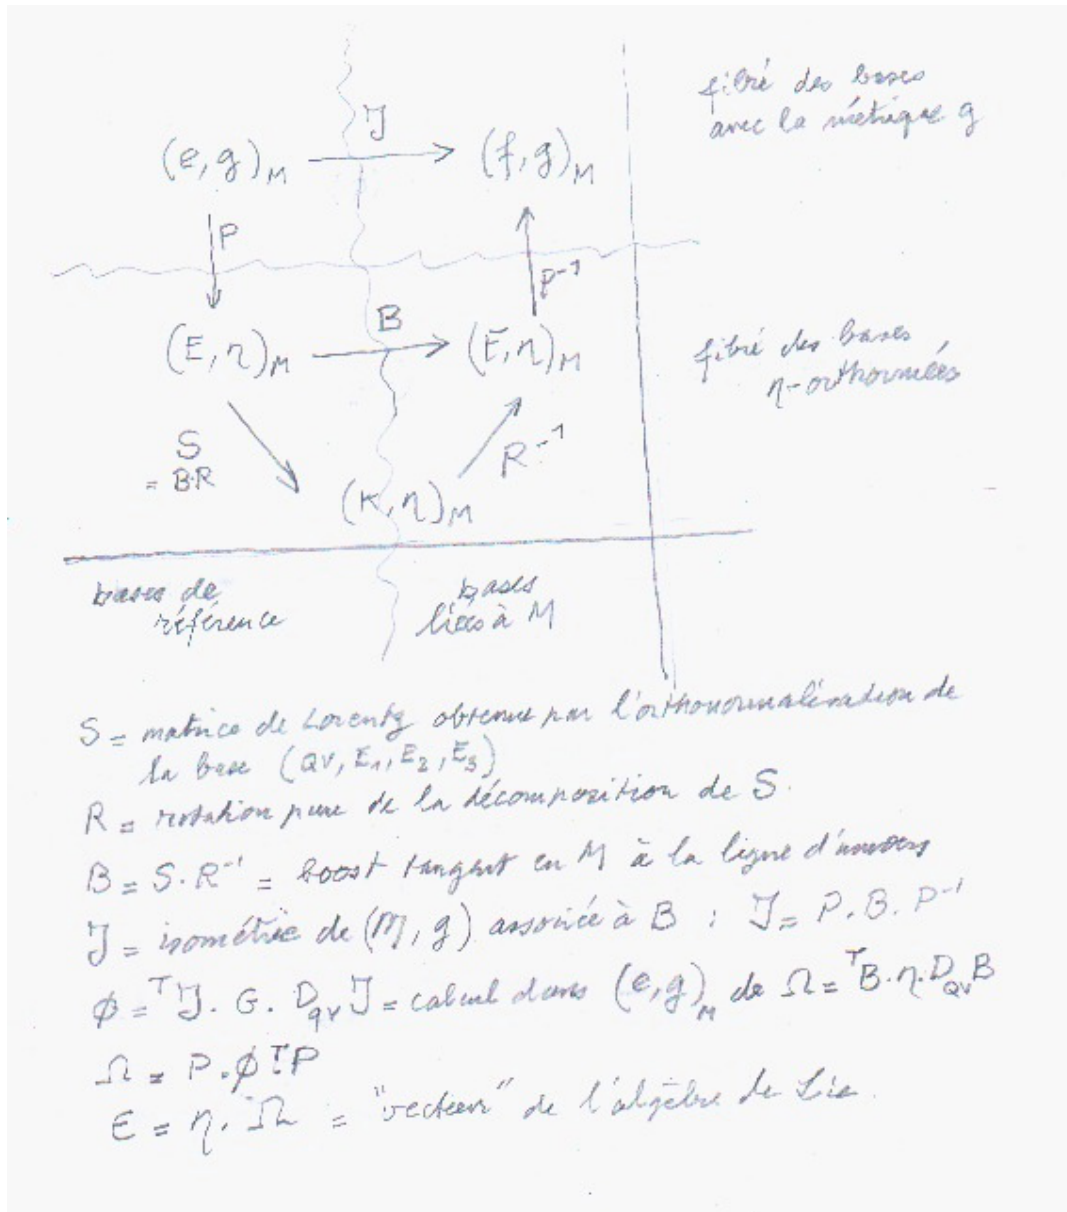 fibré des bases
avec la métrique g
(e, g)M J (f, g)M
P P⁻¹
(E, η)M B (F, η)M
fibré des bases
η-orthormées
S
= B·R
R⁻¹
(K, η)M
bases de
référence
bases
liées à M
S = matrice de Lorentz obtenue par l'orthonormalisation de
la base (QV, E₁, E₂, E₃)
R = rotation pure de la décomposition de S.
B = S·R⁻¹ = boost tangent en M à la ligne d'univers
J = isométrie de (M, g) associée à B : J = P.B.P⁻¹
ϕ = ᵀJ. G. D_qv J = calcul dans (e,g)M de Ω = ᵀB.η.D_QV B
Ω = P.ϕ.ᵀP
Є = η.Ω = "vecteur" de l'algèbre de Lie.